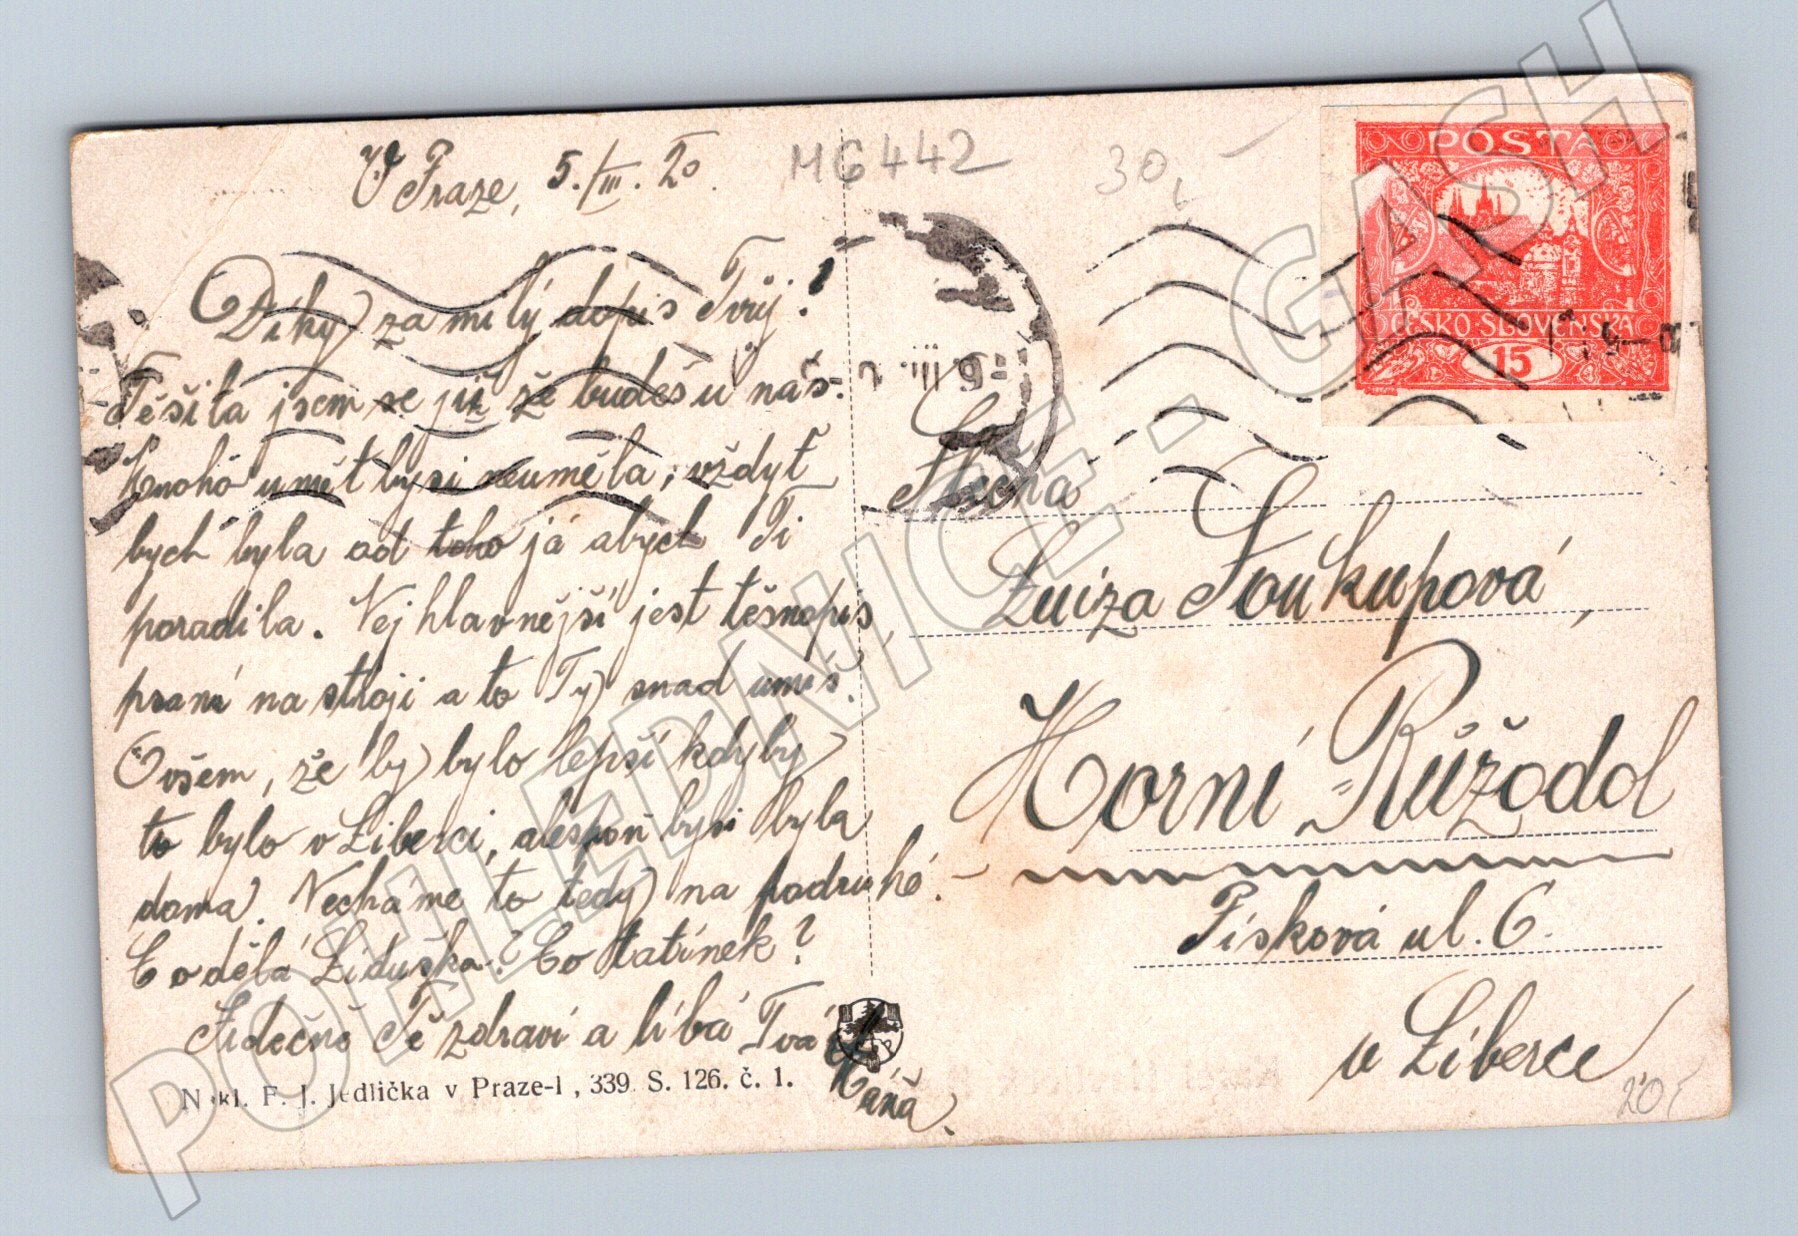 V Praze, 5./III. 20.
MG442
30,-
Díky za milý dopis Tvůj!
Těšila jsem se již že budeš u nás.
Mnoho umět bysi neuměla, vždyť
bych byla od toho já abych Ti
poradila. Nejhlavnější jest těsnopis,
psaní na stroji a to Ty snad umíš.
Ovšem, že by bylo lepší kdyby
to bylo v Liberci, alespoň bysi byla
doma. Necháme to tedy na podruhé.-
Co dělá Liduška? Co tatínek?
Srdečně Tě zdraví a líbá Tvá
Káňa.
Nakl. F. J. Jedlička v Praze-I, 339 S. 126. č. 1.
POŠTA
ČESKO-SLOVENSKÁ
15
6 III.
Slečna
Luiza Soukupová,
Horní Růžodol
Písková ul. 6.
v Liberce
20,
POHLEDNICE - GASH